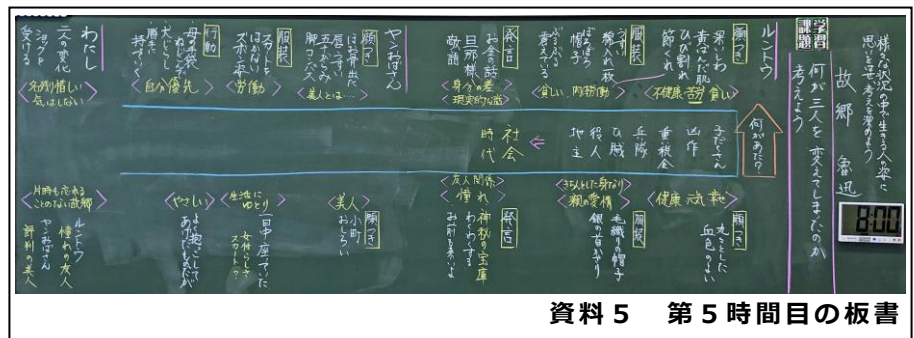 様々な状況の中で生きる人の姿に
思いを馳せ考えを深めよう
故郷 魯迅
学習課題
何が三人を変えてしまったのか
考えよう
8:00
何があった?
ルントウ
顔つき
深いしわ
黄ばんだ肌
ひび割れ
節くれ
<不健康 苦労 貧しい>
服装
うすい
綿入れ一枚
ぼろぼろ
帽子
ぶるぶる
震えている
<貧しい 肉体労働>
発言
お金の話
旦那様
敬語
<身分の差
現実的な話>
ヤンおばさん
顔つき
ほお骨が出た
唇のうすい
五十がらみ
脚コンパス
<美人とは…>
服装
スカートを
はかない
ズボン
<労働>
行動
母の手袋
ねじこむ
犬じらし
勝手に
持っていく
<自分優先>
わたし
二人の変化
ショック
受ける
<名残り惜しい
気はしない>
子だくさん
凶作
重税金
兵隊
ひ賊
役人
地主
社会
時代
顔つき
丸々とした
血色のよい
<健康 元気 幸せ>
服装
毛織りの帽子
銀の首かざり
<きちんとした身なり
親の愛情>
発言
神秘の宝庫
わくわくする
お前を系いよ
<友人関係
憧れ>
顔つき
小町
おしろい
<美人>
一日中座っていた
女性らしさ
スカート?
<生活に
ゆとり>
よく抱っこして
あげたものだが
<やさしい>
ルントウ
憧れの友人
ヤンおばさん
評判の美人
<片時も忘れる
ことのない故郷>
資料5 第5時間目の板書